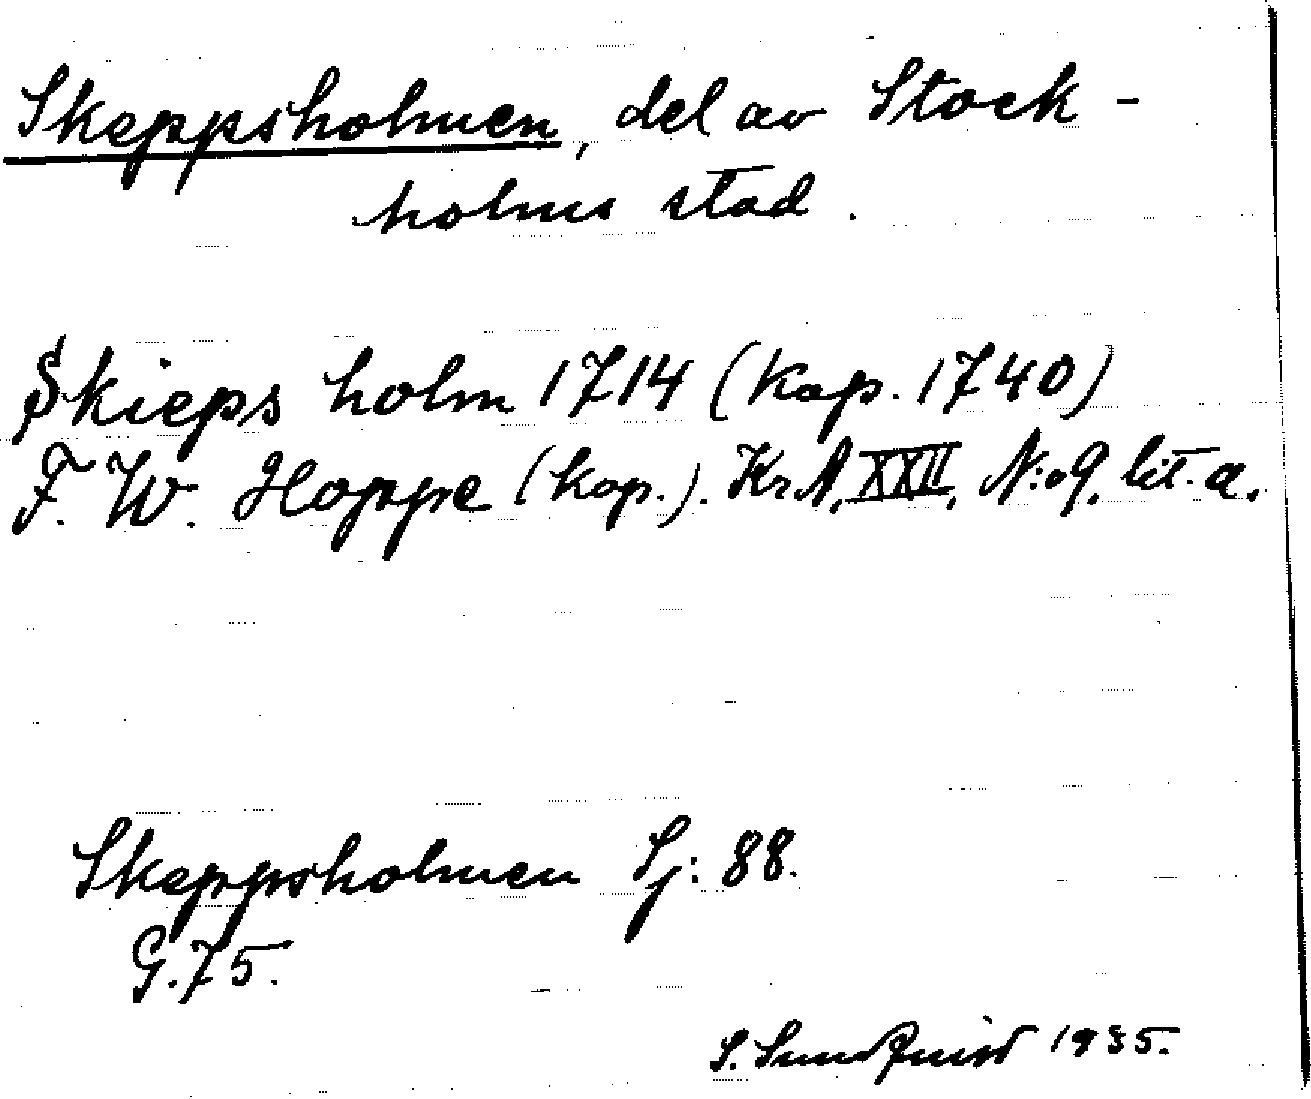 Skeppsholmen, del av Stock-
holms stad.
Skieps holm 1714 (kop. 1740)
F. W. Hoppe (kop.). KrA, XXII, N:o 9. lit. a.
Skeppsholmen Sj: 88.
G. 75.
S. Sundquist 1935.